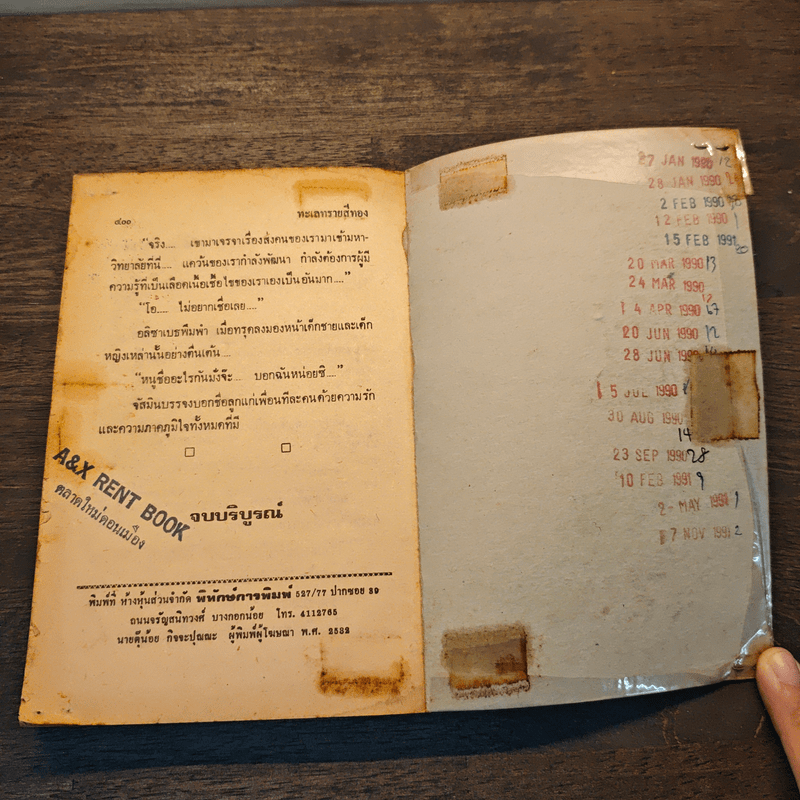 ๔๐๐ ทะเลทรายสีทอง
"จริง.... เขามาเจรจาเรื่องส่งคนของเรามาเข้ามหา-
วิทยาลัยที่นี่.... แคว้นของเรากำลังพัฒนา กำลังต้องการผู้มี
ความรู้ที่เป็นเลือดเนื้อเชื้อไขของเราเองเป็นอันมาก...."
"โอ..... ไม่อยากเชื่อเลย...."
อลิซาเบธพึมพำ เมื่อทรุดลงมองหน้าเด็กชายและเด็ก
หญิงเหล่านั้นอย่างตื่นเต้น....
"หนูชื่ออะไรกันมั่งจ๊ะ.... บอกฉันหน่อยซิ...."
จัสมินบรรจงบอกชื่อลูกแก่เพื่อนทีละคนด้วยความรัก
และความภาคภูมิใจทั้งหมดที่มี
A&X RENT BOOK
ตลาดใหม่ดอนเมือง
จบบริบูรณ์
พิมพ์ที่ ห้างหุ้นส่วนจำกัด พิทักษ์การพิมพ์ 527/77 ปากซอย 39
ถนนจรัญสนิทวงศ์ บางกอกน้อย โทร. 4112765
นายตุ๊น้อย กิจจะปุณณะ ผู้พิมพ์ผู้โฆษณา พ.ศ. 2532
27 JAN 1990 12
28 JAN 1990
2 FEB 1990
12 FEB 1990 1
15 FEB 1991 20
20 MAR 1990 13
24 MAR 1990
12
4 APR 1990 17
20 JUN 1990 12
28 JUN 1990
5 JUL 1990
30 AUG 1990
14
23 SEP 1990 28
10 FEB 1991 9
2- MAY 1991 1
7 NOV 1991 2